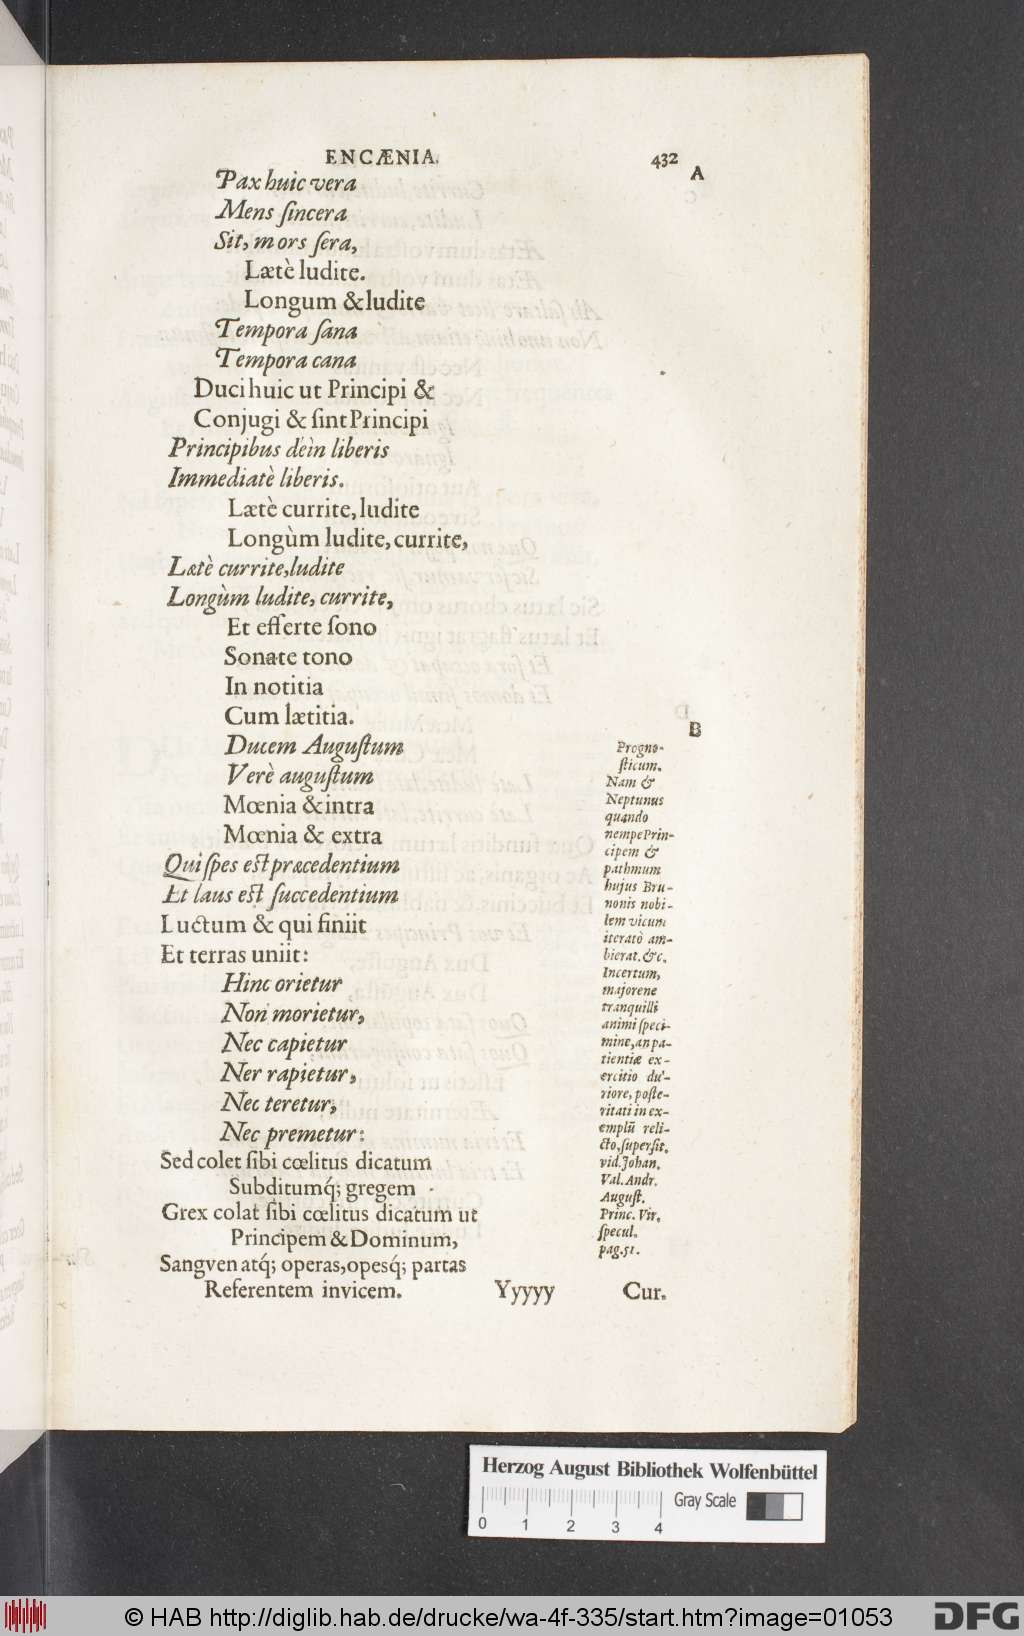 ENCÆNIA. 432
A
Pax huic vera
Mens sincera
Sit, mors sera,
Lætè ludite.
Longum & ludite
Tempora sana
Tempora cana
Duci huic ut Principi &
Conjugi & sint Principi
Principibus dein liberis
Immediatè liberis.
Lætè currite, ludite
Longùm ludite, currite,
Lætè currite, ludite
Longùm ludite, currite,
Et efferte sono
Sonate tono
In notitia
Cum lætitia.
Ducem Augustum
Verè augustum
Mœnia & intra
Mœnia & extra
Qui spes est præcedentium
Et laus est succedentium
Luctum & qui finiit
Et terras uniit:
Hinc orietur
Non morietur,
Nec capietur
Ner rapietur,
Nec teretur,
Nec premetur:
Sed colet sibi cœlitus dicatum
Subditumq́; gregem
Grex colat sibi cœlitus dicatum ut
Principem & Dominum,
Sangven atq́; operas, opesq́; partas
Referentem invicem.
B
Progno-
sticum.
Nam &
Neptunus
quando
nempe Prin-
cipem &
pathmum
hujus Bru-
nonis nobi-
lem vicum
iteratò am-
bierat. &c.
Incertum,
majorene
tranquilli
animi speci-
mine, an pa-
tientiæ ex-
ercitio du-
riore, poste-
ritati in ex-
emplũ reli-
cto, supersit.
vid. Johan.
Val. Andr.
August.
Princ. Vir.
specul.
pag. 51.
Yyyyy Cur.
Herzog August Bibliothek Wolfenbüttel
Gray Scale
0 1 2 3 4
© HAB http://diglib.hab.de/drucke/wa-4f-335/start.htm?image=01053
DFG